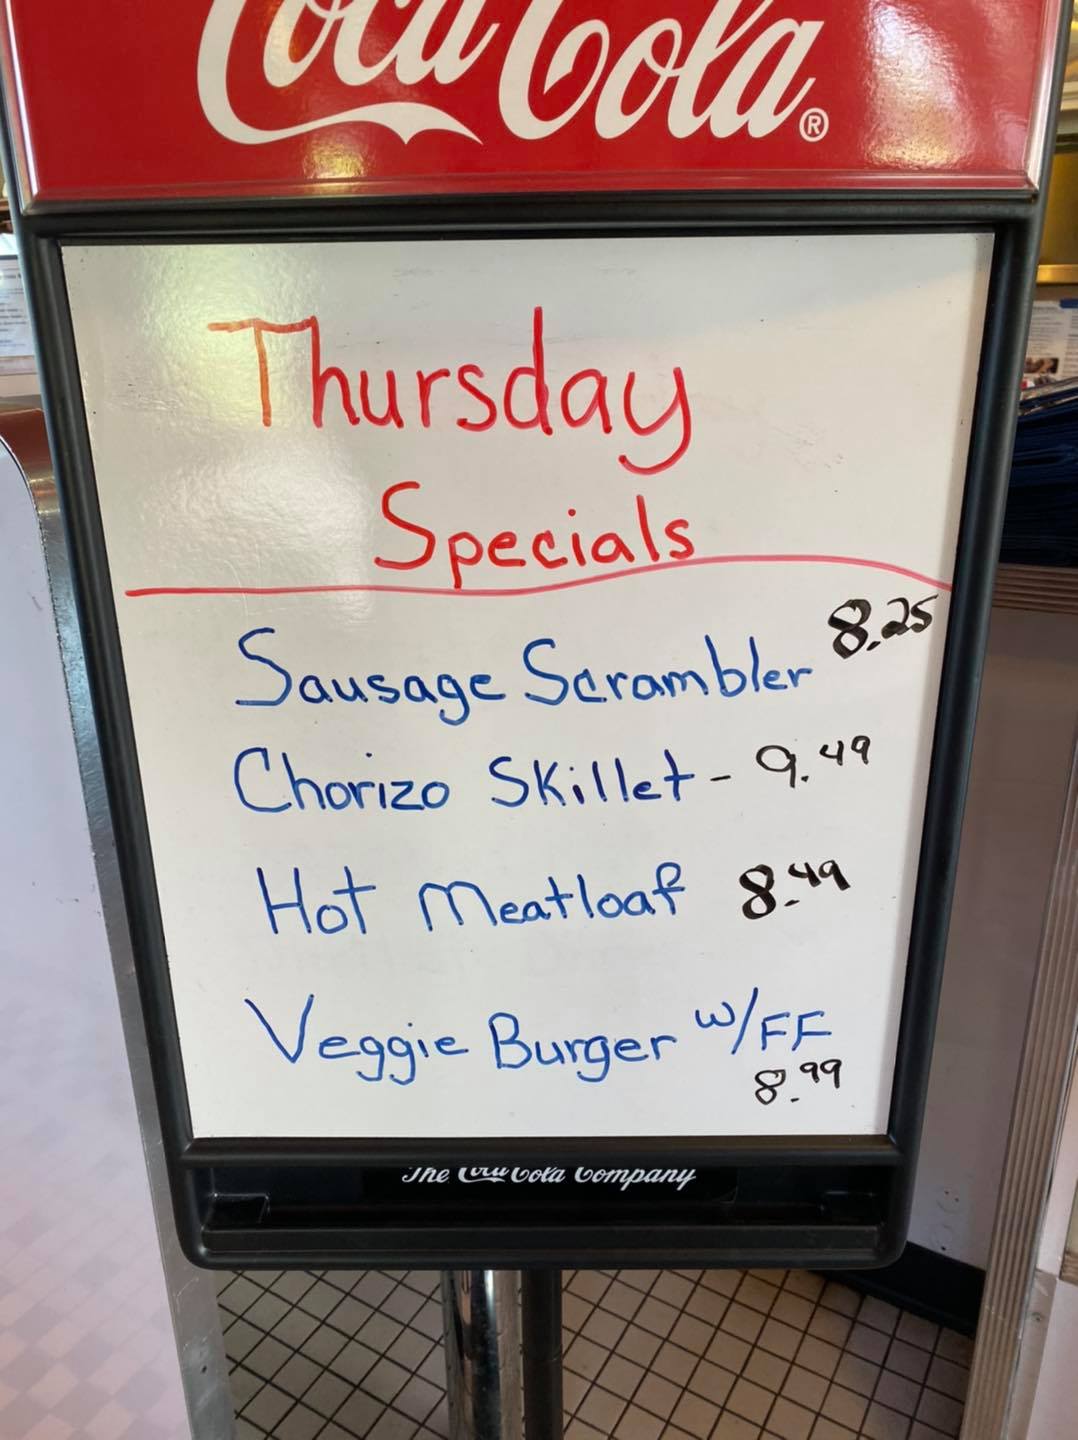 Coca-Cola®
Thursday
Specials
Sausage Scrambler 8.25
Chorizo Skillet - 9.49
Hot Meatloaf 8.49
Veggie Burger w/FF
8.99
The Coca-Cola Company